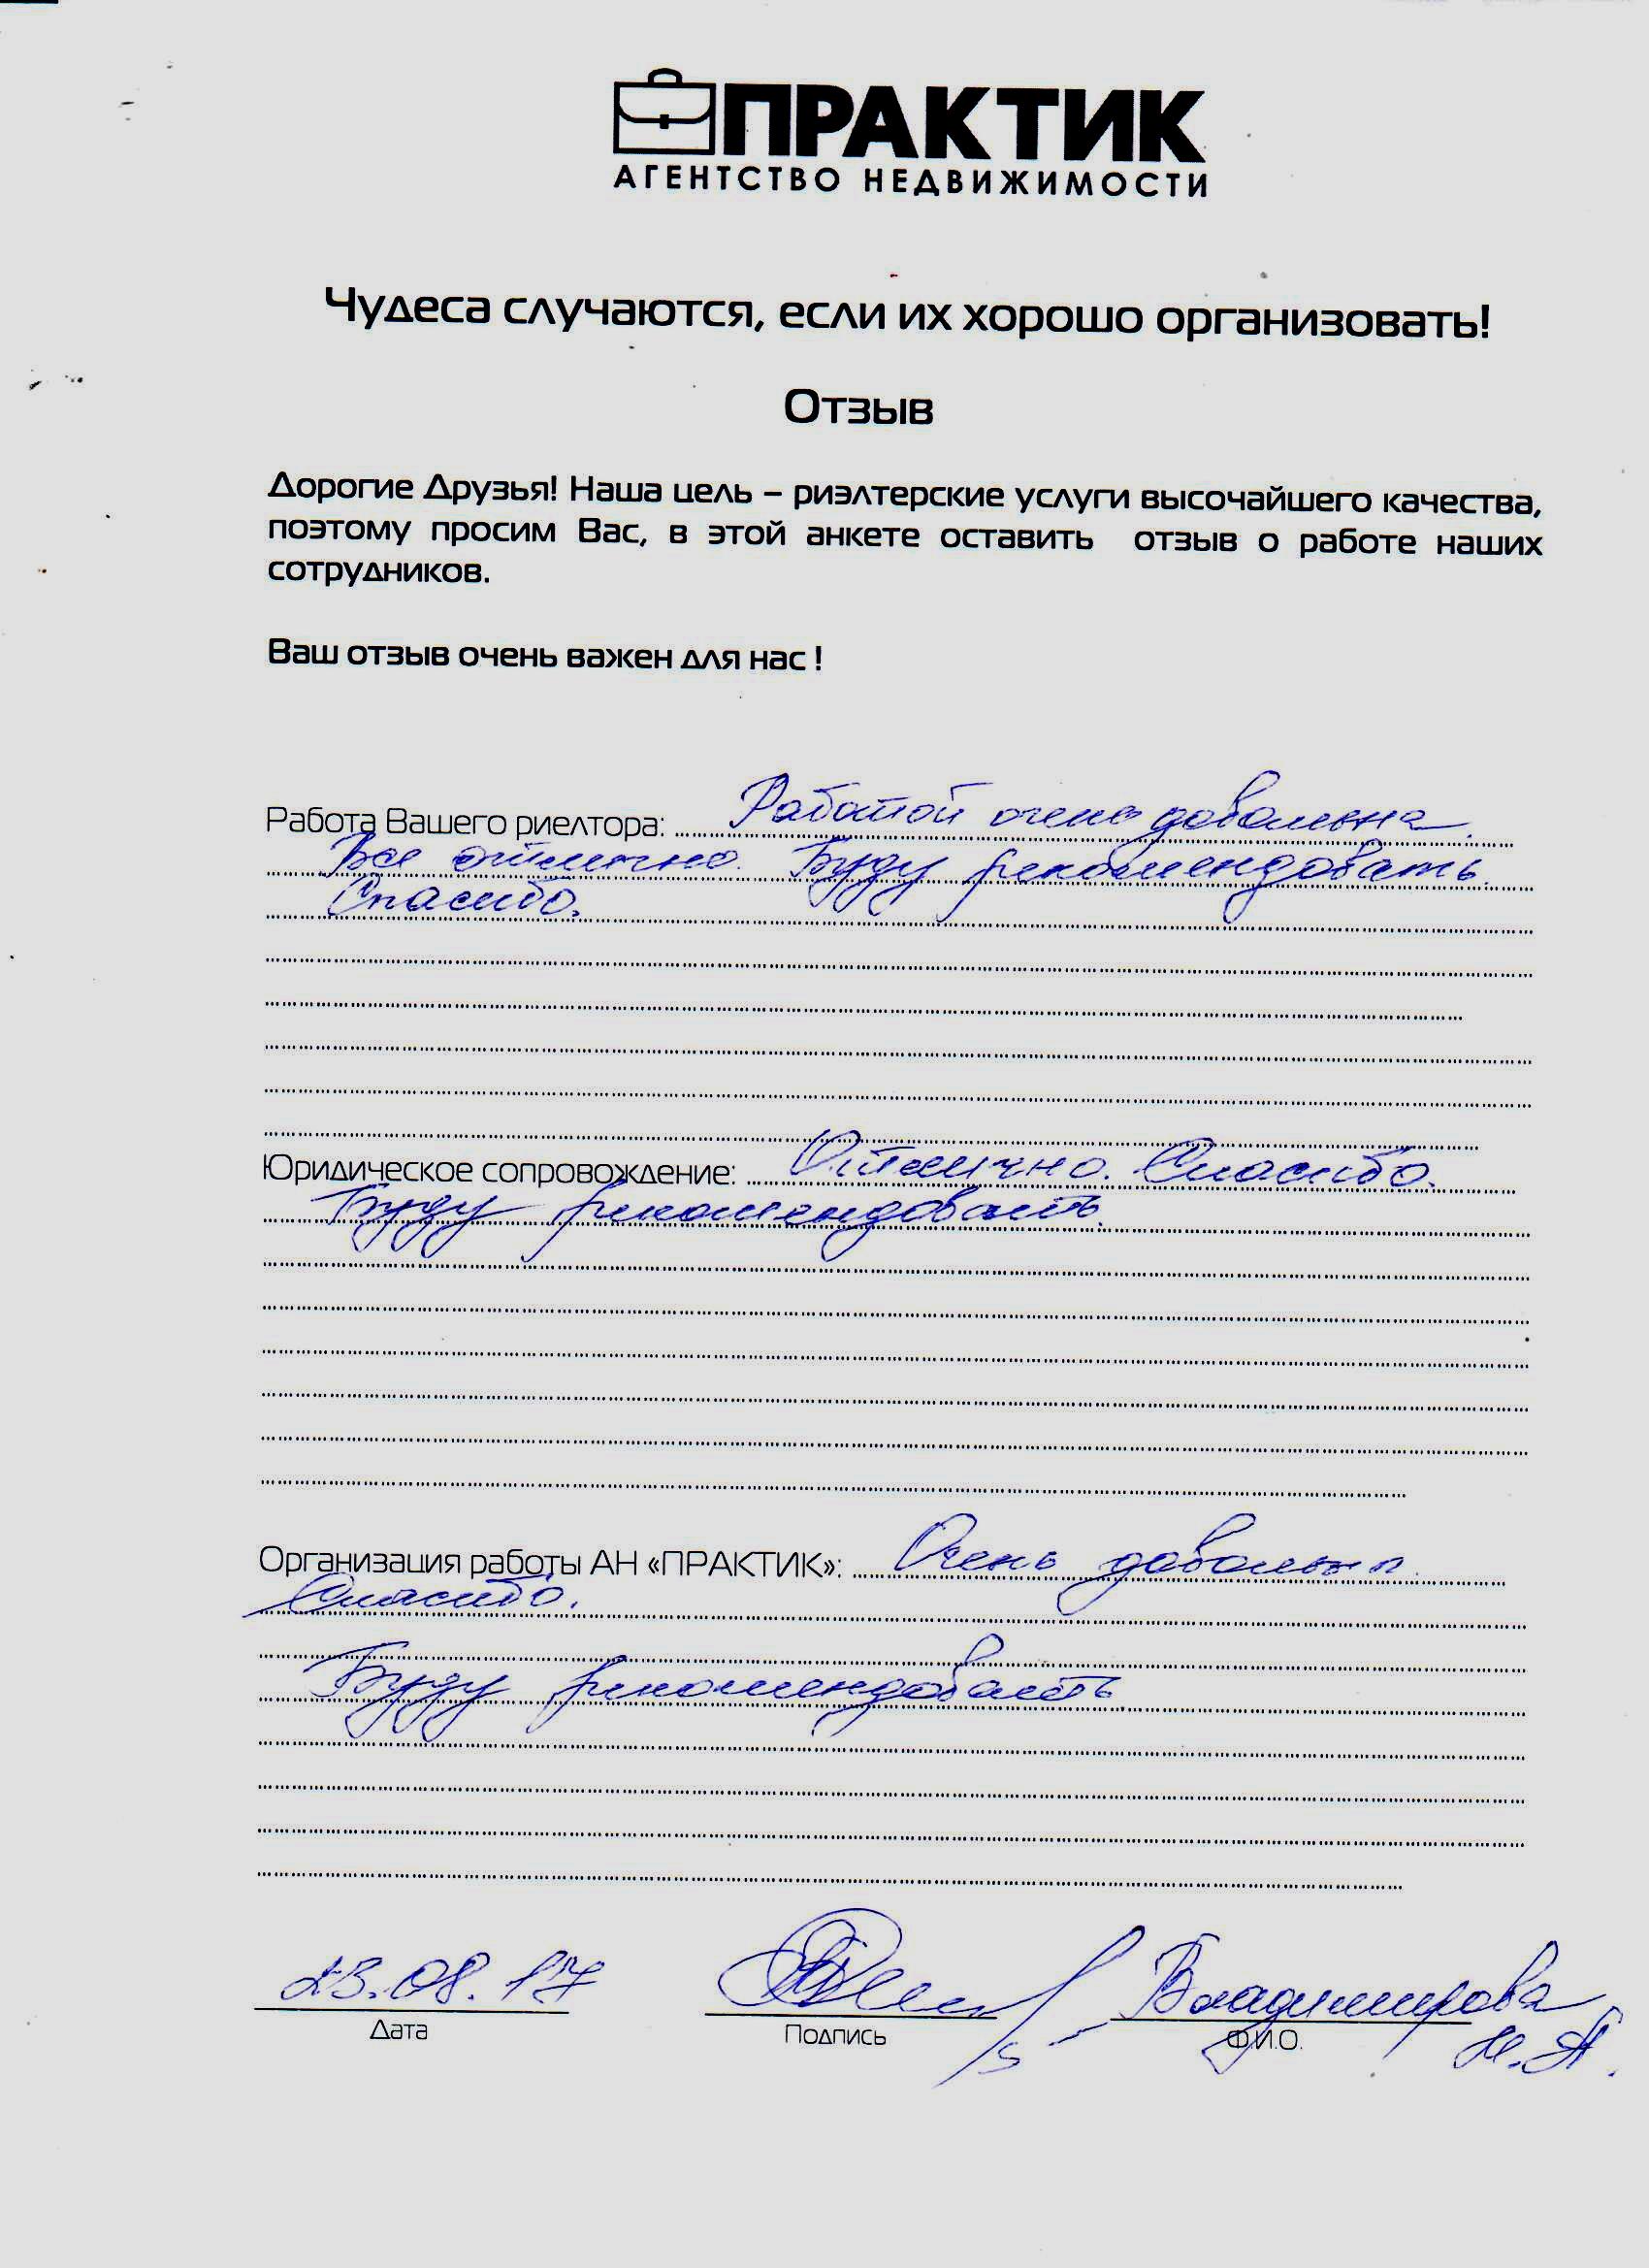 ПРАКТИК
АГЕНТСТВО НЕДВИЖИМОСТИ
Чудеса случаются, если их хорошо организовать!
Отзыв
Дорогие Друзья! Наша цель – риэлтерские услуги высочайшего качества,
поэтому просим Вас, в этой анкете оставить отзыв о работе наших
сотрудников.
Ваш отзыв очень важен для нас !
Работа Вашего риелтора: Работой очень довольна.
Все отлично. Буду рекомендовать.
Спасибо.
Юридическое сопровождение: Отлично. Спасибо.
Буду рекомендовать.
Организация работы АН «ПРАКТИК»: Очень довольна.
Спасибо.
Буду рекомендовать.
23.08.17 Владимирова
Дата Подпись Ф.И.О. Н.А.